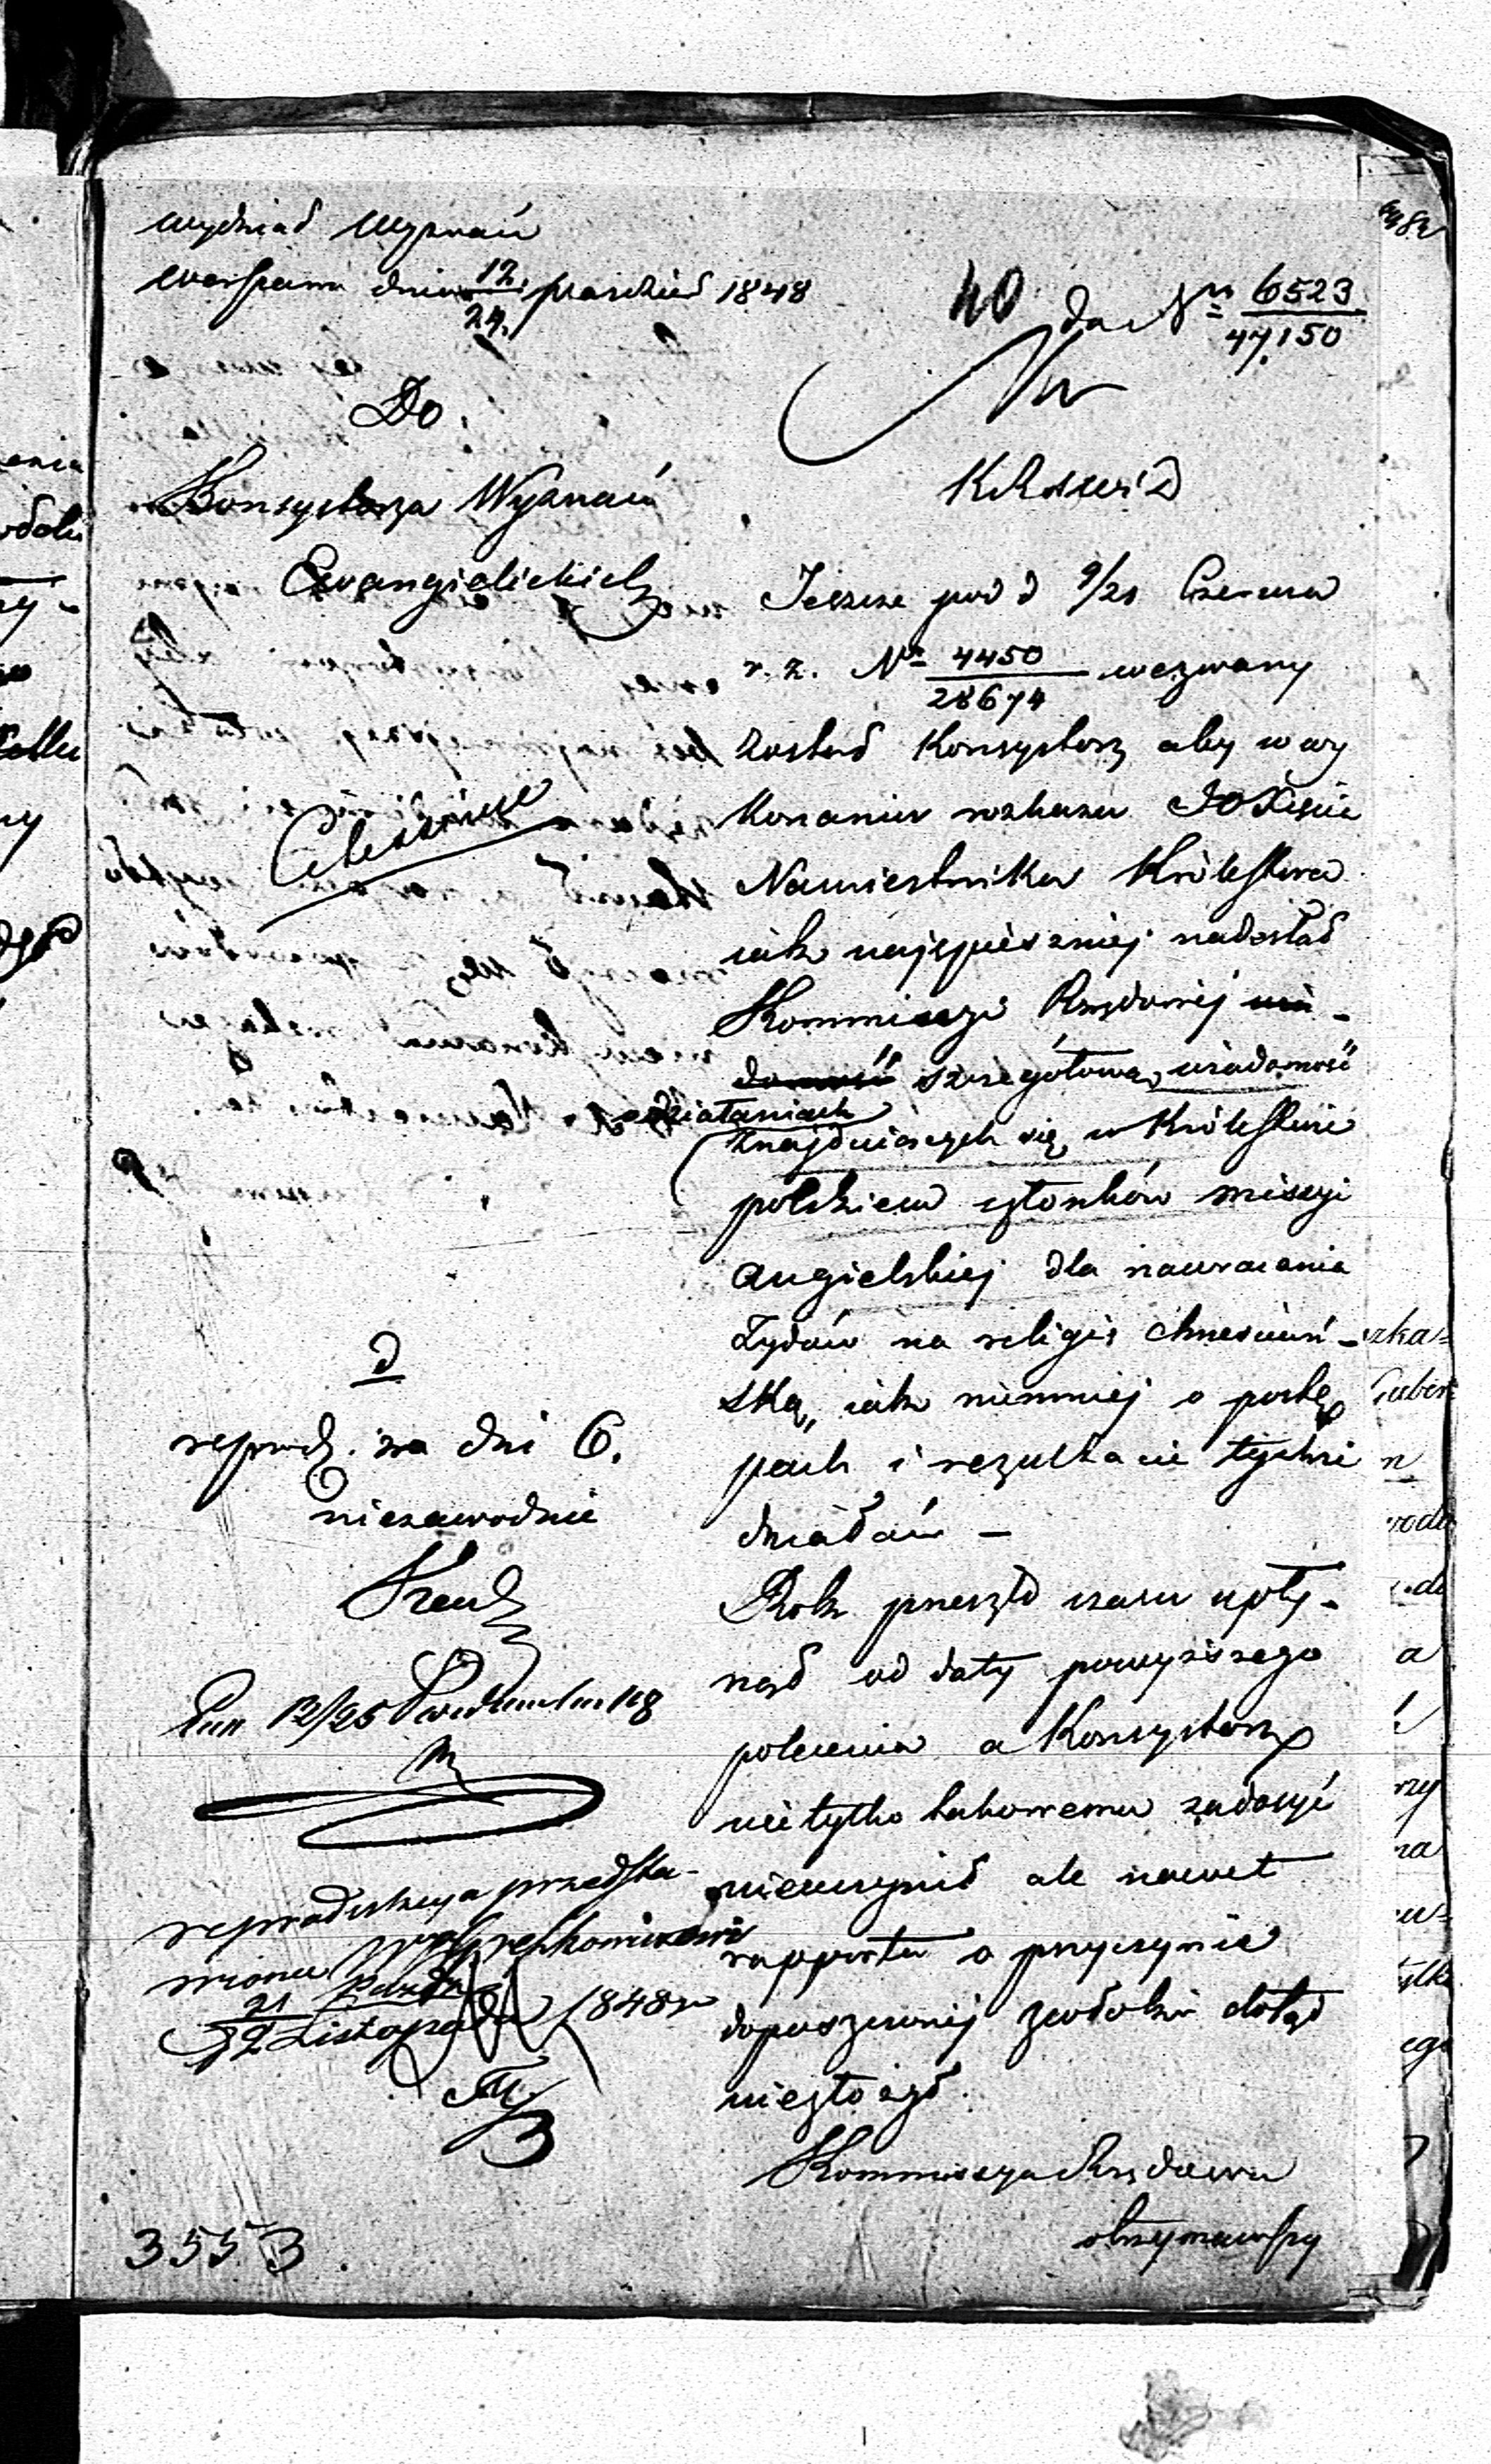 Wydział Wyznań
Warszawa dnia 12/24 paździer 1848
40 do Nru 6523/47,150
Do
Konsystorza Wyznań
Ewangielickich
K R S W i D
Jeszcze pod d 9/21 Czerwca
r. z. Nr 4450/28674 wezwany
został Konsystorz aby w wy
konaniu rozkazu JO Xięcia
Namiestnika Królestwa
iak najspieszniej nadesłał
Kommissyi Rządowej wia-
domość szczegółową wiadomość
o działaniach
znajdujących się w Królestwie
polskiem członków missyi
angielskiej dla nawracania
Żydów na religię chrześciań-
ską, iak niemniej o postę
pach i rezultacie tychże
działań —
Rok przeszło czasu upły-
nął od daty powyższego
polecenia a Konsystorz
nietylko takowemu zadosyć
nieuczynił ale nawet
rapportu o przyczynie
dopuszczonej zwłoki dotąd
niezłożył.
Kommissya Rządowa
otrzymawszy
d
reprod. za dni 6.
niezawodnie
12/25
reprodukcya przedsta-
wiona
Listopada 1848 r
3553